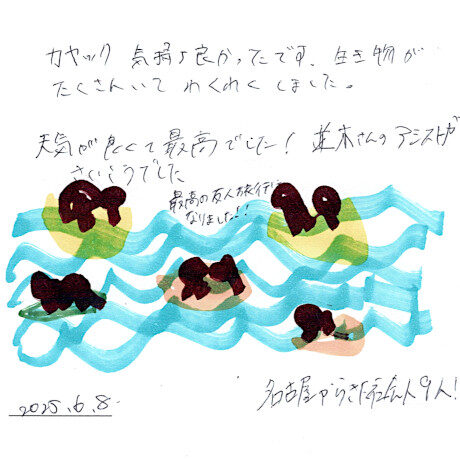 カヤック 気持ち良かったです。生き物が
たくさんいて わくわく しました。
天気が良くて最高でした! 並木さんのアシストが
さいこうでした
最高の友人旅行に
なりました!!
2025.6.8.
名古屋からきた社会人9人!